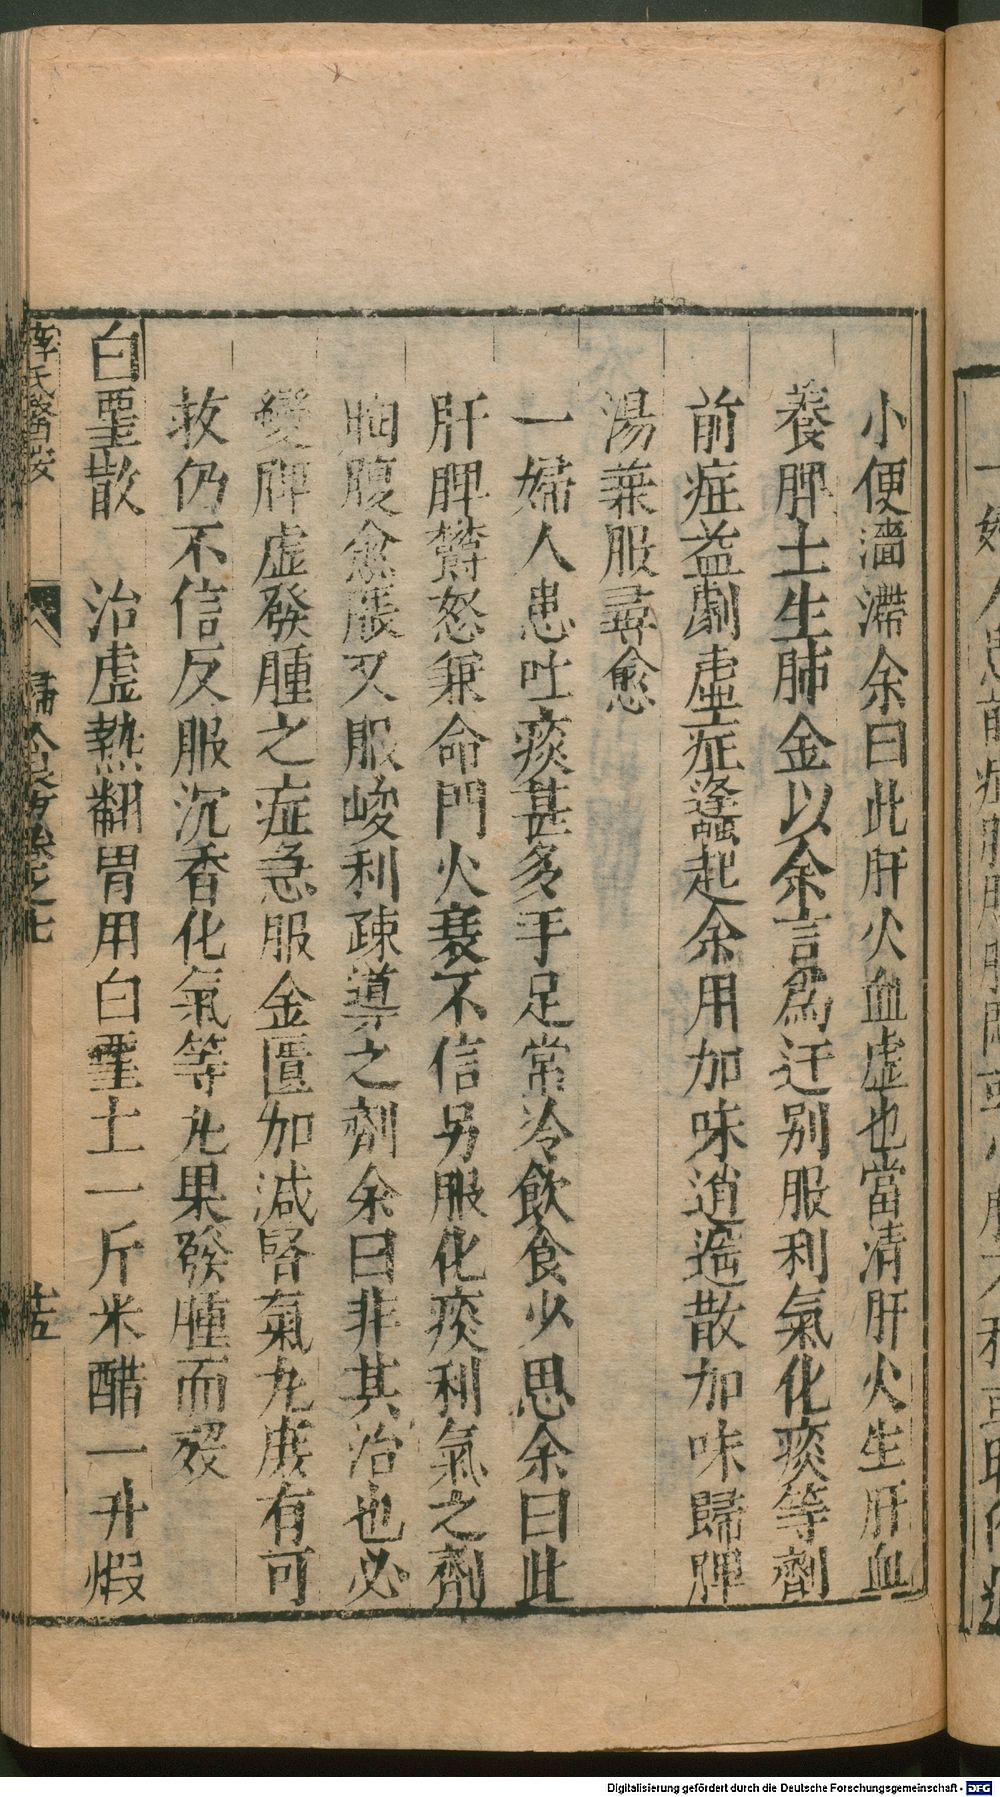 小便濇滯余曰此肝火血虛也當清肝火生肝血
養脾土生肺金以余言爲迂别服利氣化痰等劑
前症益劇虛症蠭起余用加味逍遙散加味歸脾
湯兼服尋愈
一婦人患吐痰甚多手足常冷飲食少思余曰此
肝脾鬱怒兼命門火衰不信另服化痰利氣之劑
胸腹愈脹又服峻利疎導之劑余曰非其治也必
變脾虛發腫之症急服金匱加減腎氣丸庶有可
救仍不信反服沉香化氣等丸果發腫而歿
白堊散 治虛熱翻胃用白堊土一斤米醋一升煆
薛氏醫按 卷之七
Digitalisierung gefördert durch die Deutsche Forschungsgemeinschaft - DFG